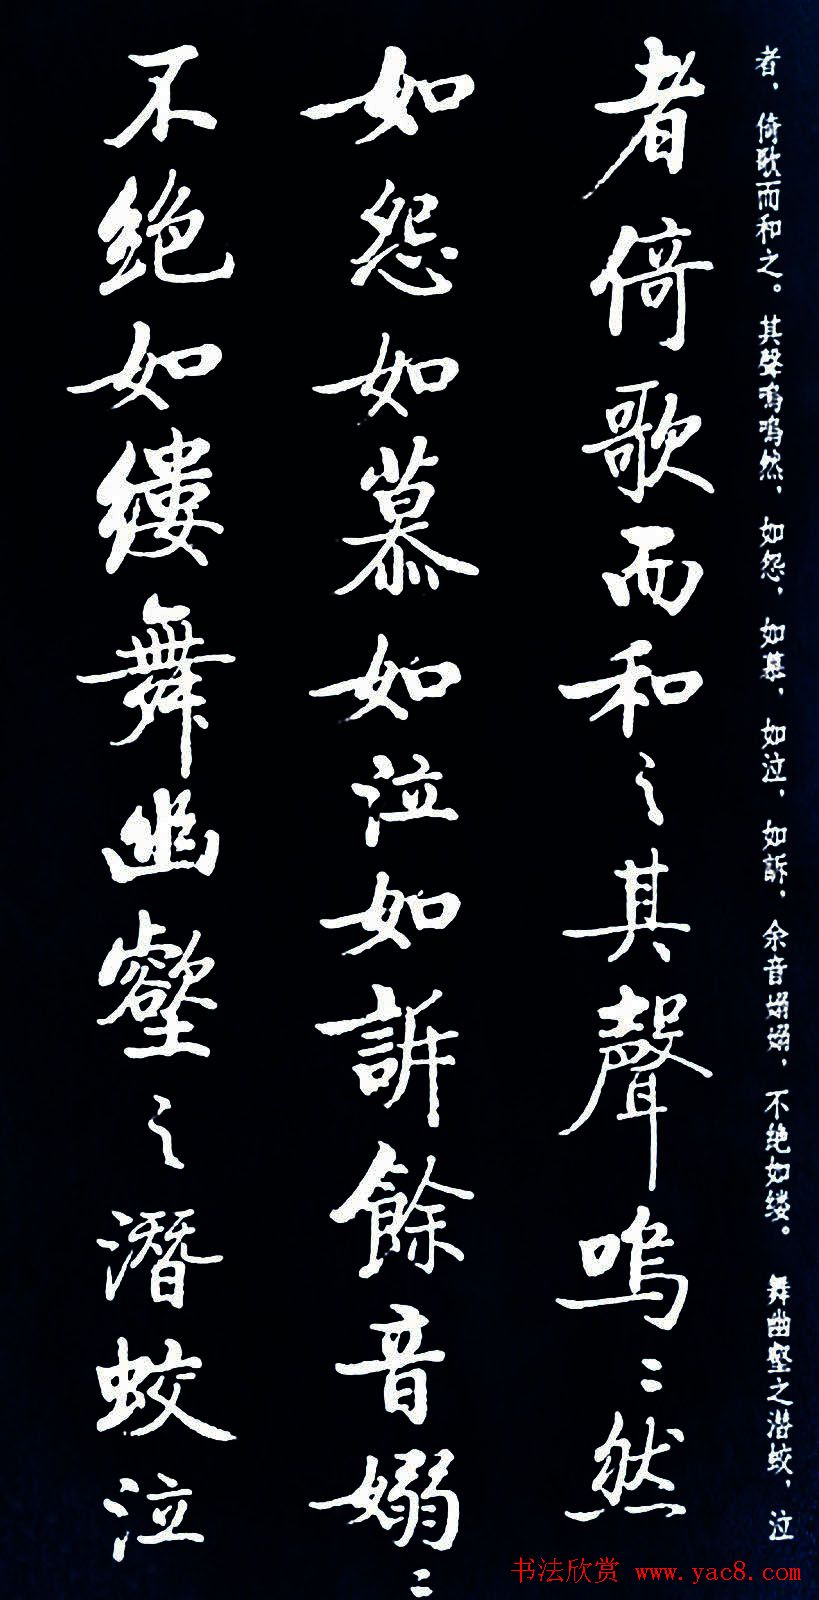 者，倚歌而和之。其聲嗚嗚然，如怨，如慕，如泣，如訴，余音嫋嫋，不绝如缕。舞幽壑之潜蛟，泣
者倚歌而和之其聲嗚〻然
如怨如慕如泣如訴餘音嫋〻
不绝如缕舞幽壑之潛蛟泣
书法欣赏 www.yac8.com